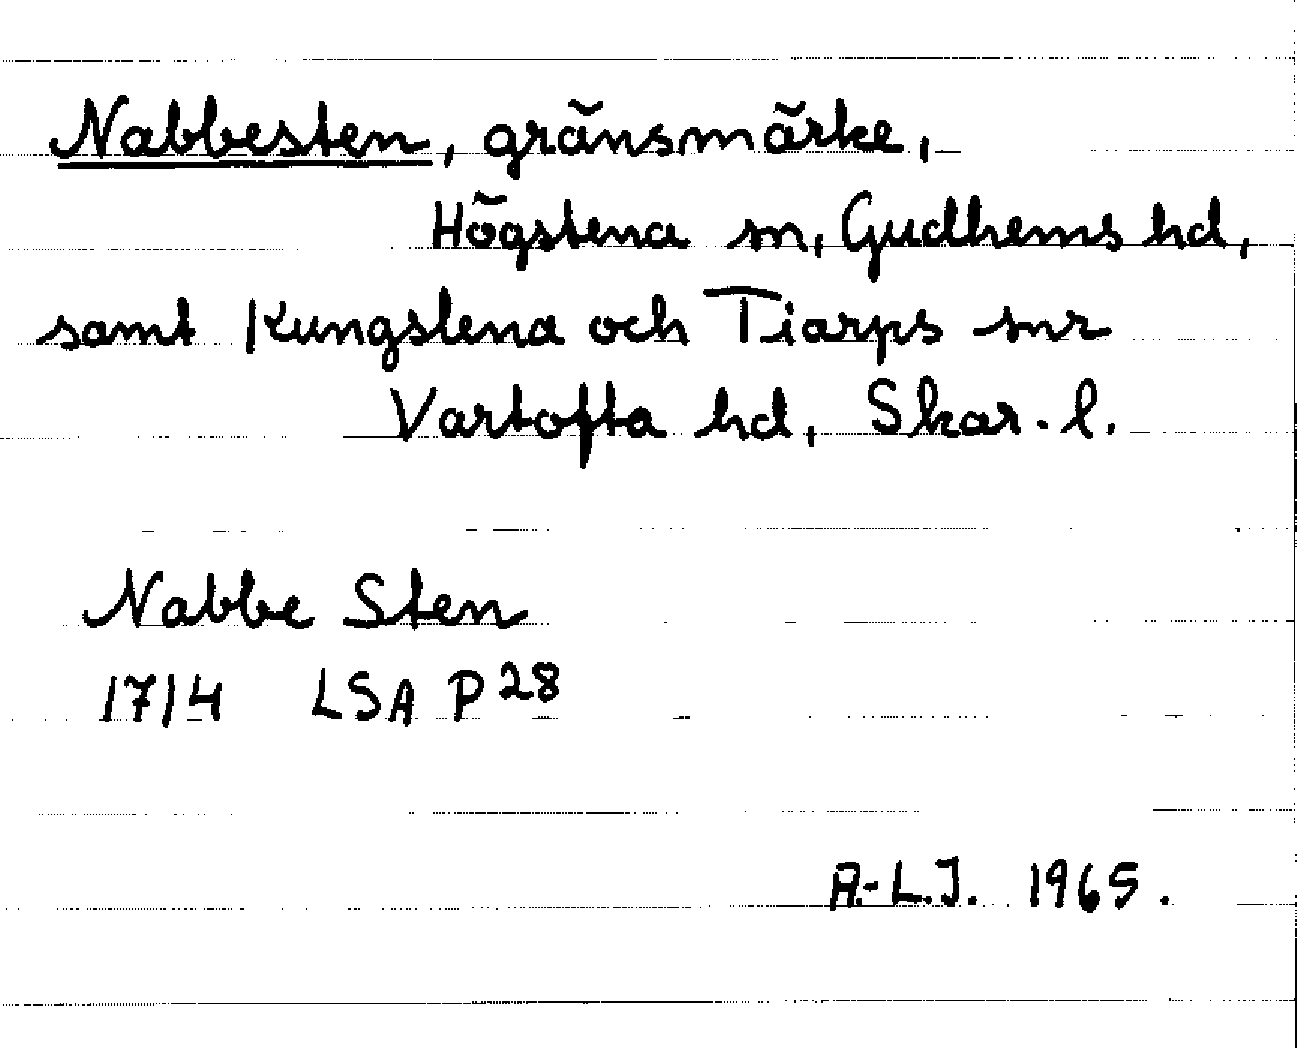 Nabbesten, gränsmärke,
Högstena sn, Gudhems hd,
samt Kungslena och Tiarps snr
Vartofta hd, Skar. l.
Nabbe Sten
1714 LSA P 28
A.-L.J. 1965.